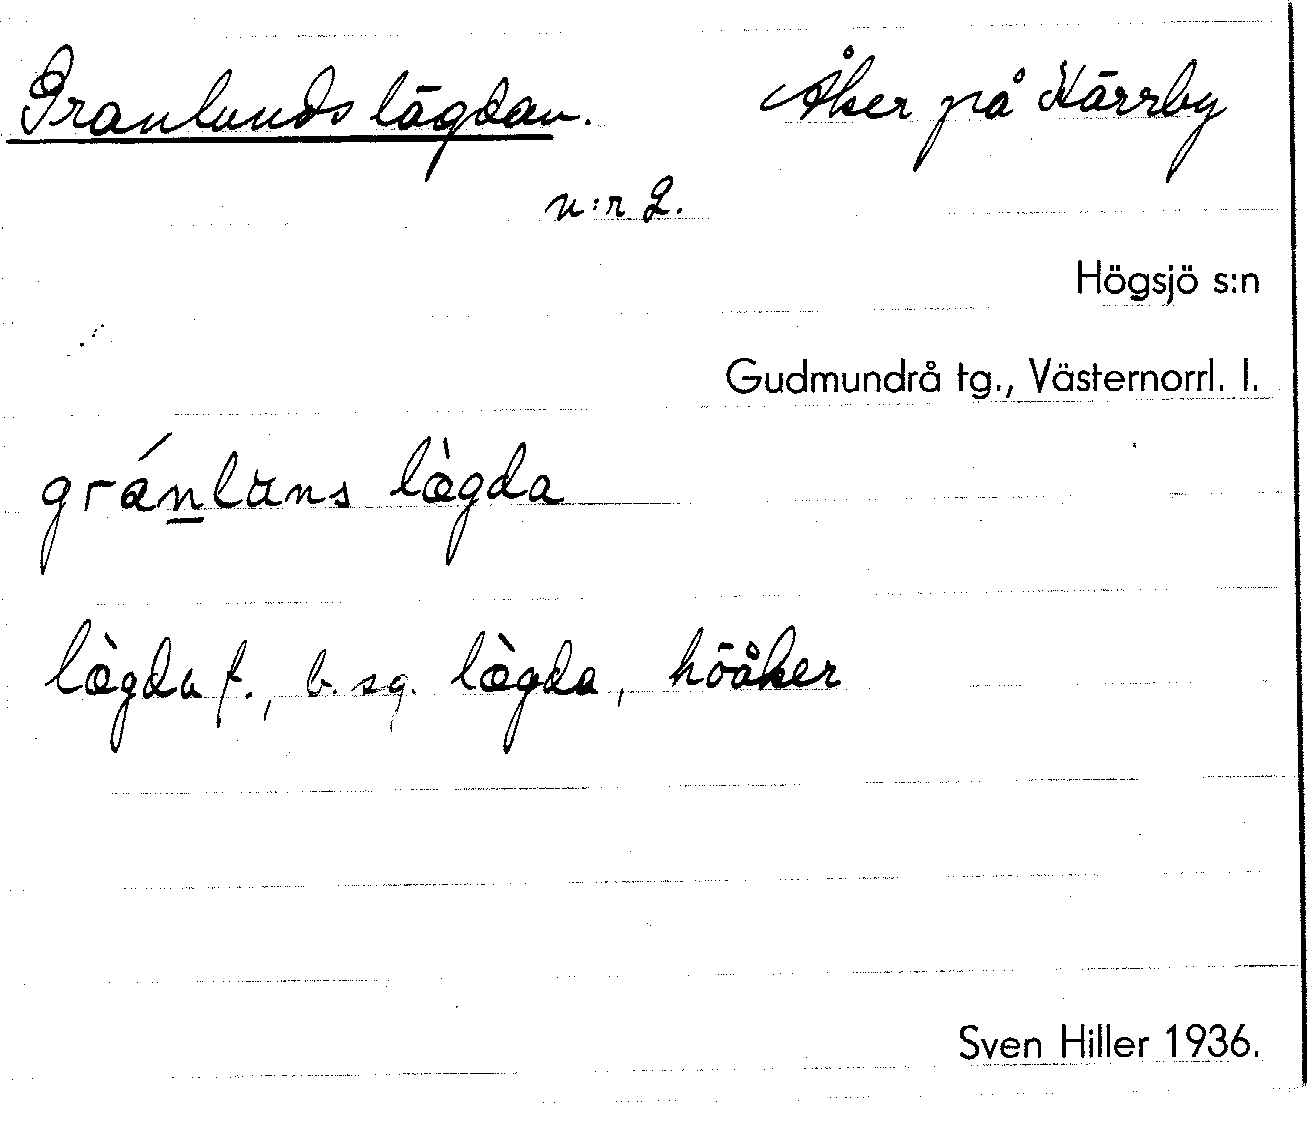 Granlundslägdan. Åker på Kärrby
n:r 2.
Högsjö s:n
Gudmundrå tg., Västernorrl. l.
gránluns lògda
lògda f., b. sg. lògda, höåker
Sven Hiller 1936.